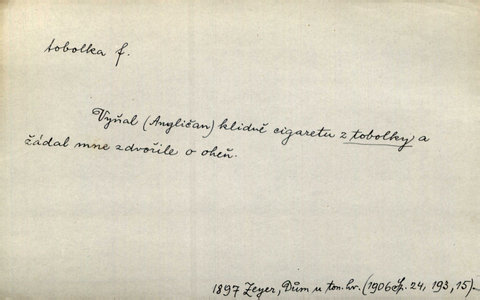 tobolka f.
Vyňal (Angličan) klidně cigaretu z tobolky a
žádal mne zdvořile o oheň.
1897 Zeyer, Dům u ton. hv. (1906 Sp. 24, 193, 15).